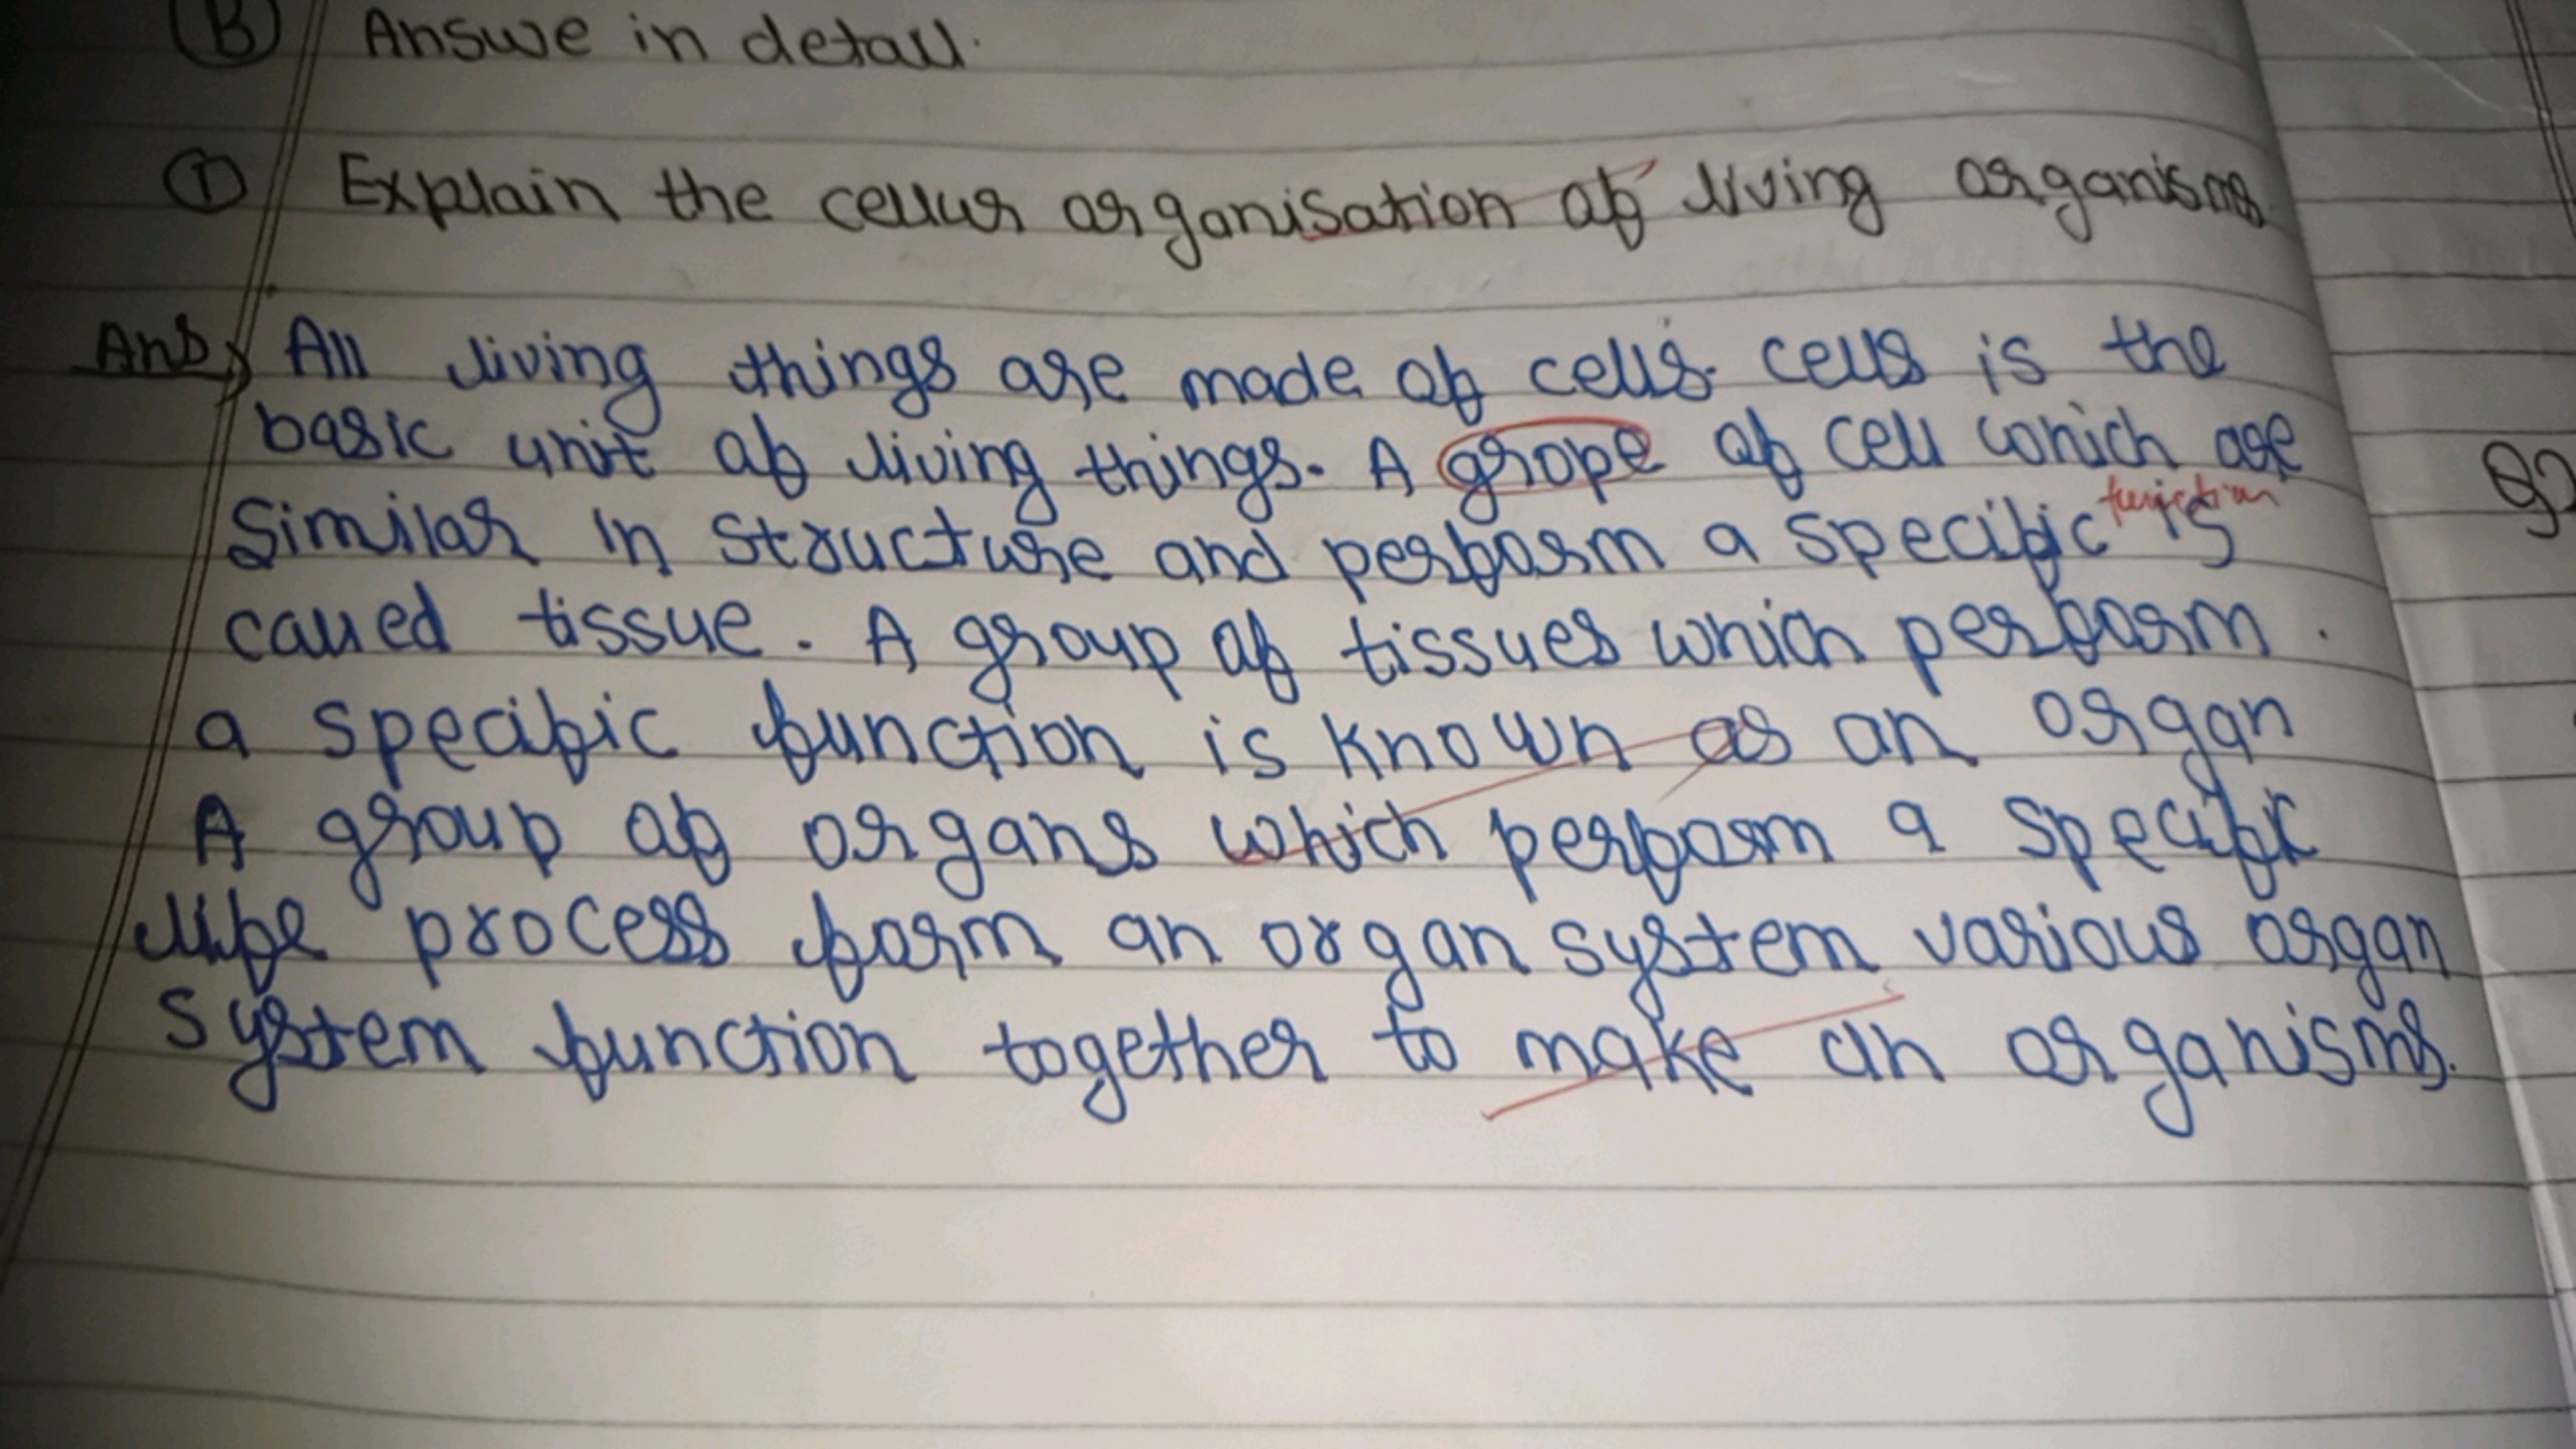 B Answe in detail.
1 Explain the cellur organisation of living organisms
Ans) All living things are made of cells. cells is the
basic unit of living things. A grope of cell which are
function
Similar in structure and perform a specific is
called tissue. A group of tissues which perform.
a specific function is known as an organ
A group of organs which perform a specific
life process form an organ system various organ
system function together to make an organisms.